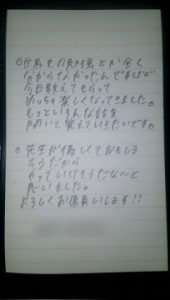 ○世界史の知識とか全く
分からなかったんですけど
今日教えてもらって
めっちゃ楽しくなってきました。
もっといろんな話を
やおいて覚えていきたいです。
○先生が優しくておもしろ
そうだから
やっていけそうだな〜と
思いました。
よろしくお願いします!!